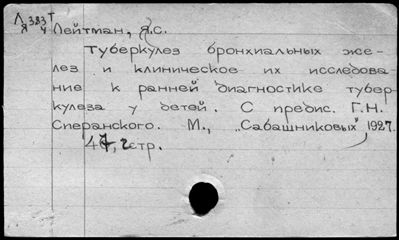 Л 383 Т
Я 4
Лейтман, Я.С.
Туберкулез бронхиальных же-
лез и клиническое их исследова-
ние к ранней диагностике тубер-
кулеза у детей. С предис. Г.Н.
Сперанского. М., „Сабашниковых" 1927.
47, 2стр.